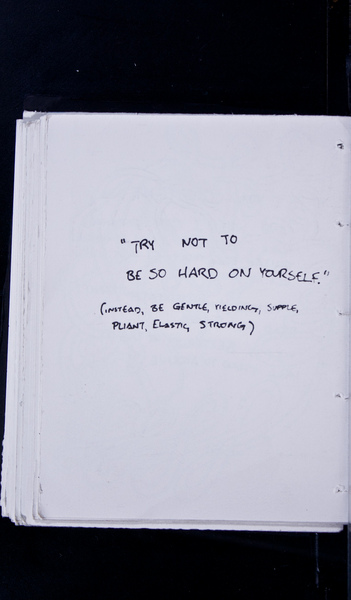 "TRY NOT TO
BE SO HARD ON YOURSELF."
(INSTEAD, BE GENTLE, YIELDING, SUPPLE,
PLIANT, ELASTIC, STRONG)